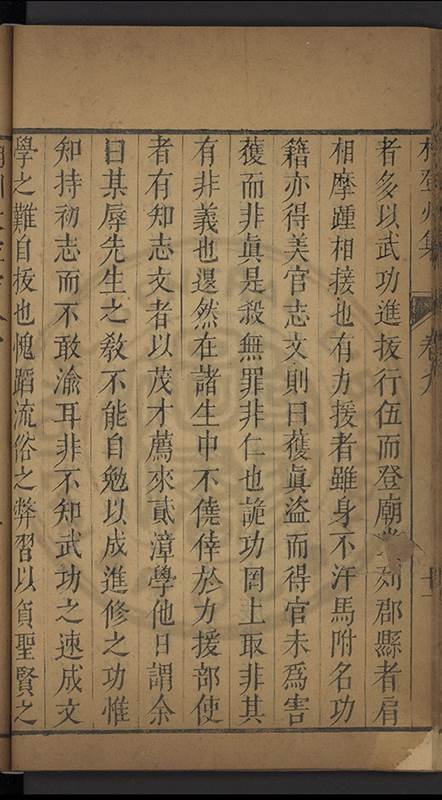 林登州集 卷九 十一
者多以武功進拔行伍而登廟 列郡縣者肩
相摩踵相接也有力援者雖身不汗馬附名功
籍亦得美官志文則曰獲眞盗而得官未爲害
獲而非眞是殺無罪非仁也詭功罔上取非其
有非義也退然在諸生中不僥倖於力援部使
者有知志文者以茂才薦來貳漳學他日謂余
曰某辱先生之敎不能自勉以成進修之功惟
知持初志而不敢渝耳非不知武功之速成文
學之難自拔也愧蹈流俗之弊習以負聖賢之